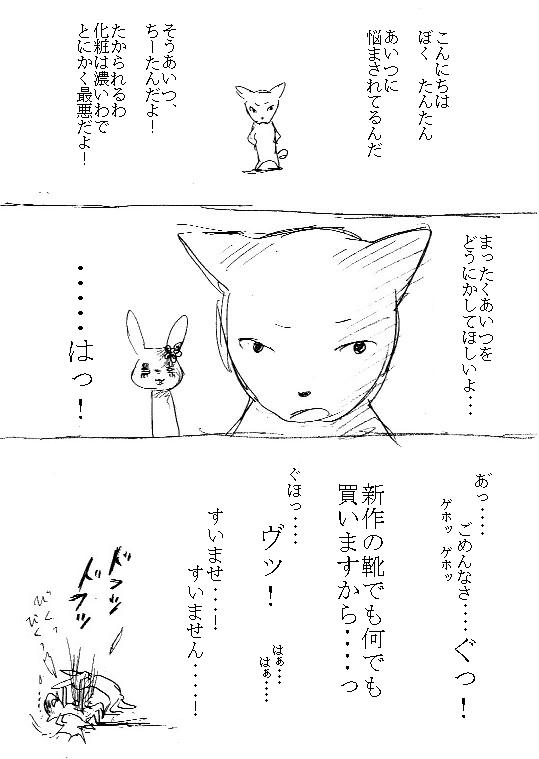 こんにちは
ぼく たんたん
あいつに
悩まされてるんだ
そうあいつ、
ちーたんだよ！
たかられるわ
化粧は濃いわで
とにかく最悪だよ！
まったくあいつを
どうにかしてほしいよ…
・・・・・はっ！
あ゙っ‥‥
ごめんなさ‥‥ぐっ！
ゲホッ ゲホッ
新作の靴でも何でも
買いますから‥‥っ
ぐほっ‥‥
ヴッ！
はぁ‥‥
はぁ‥‥
すいませ‥‥！
すいません‥‥‥！
ドフッ
ドフッ
びくっ
びくっ